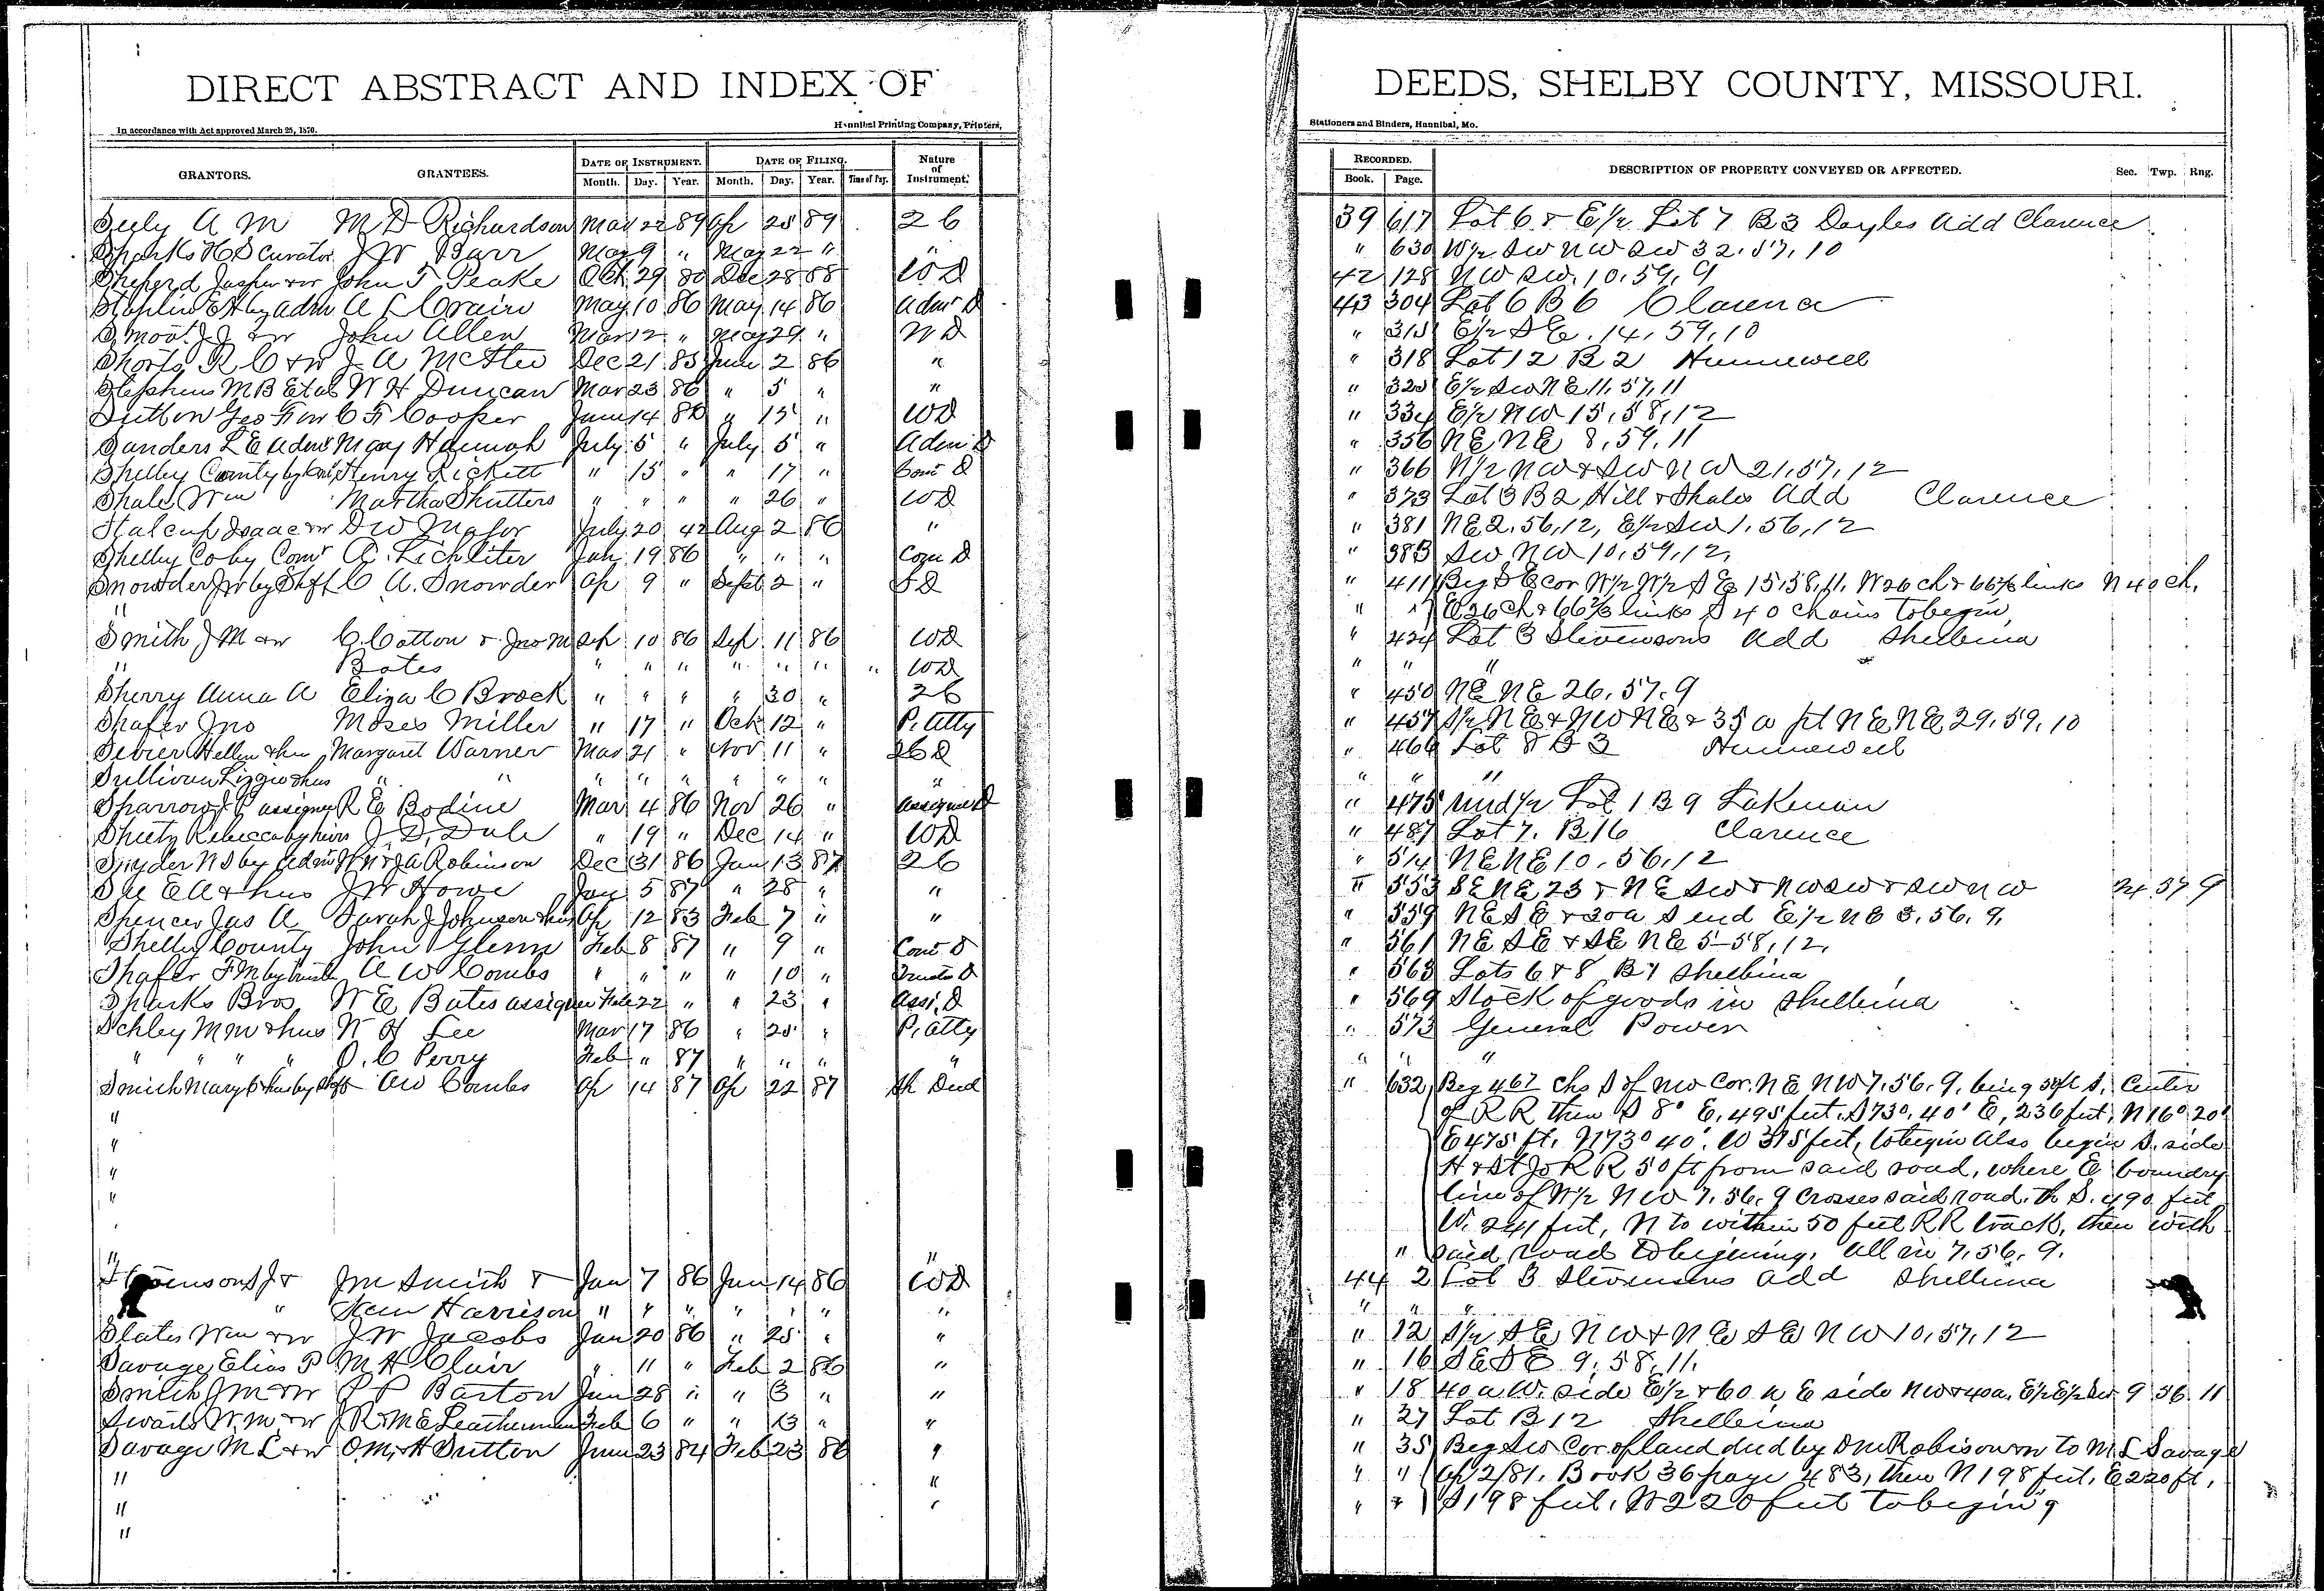 DIRECT ABSTRACT AND INDEX OF DEEDS, SHELBY COUNTY, MISSOURI.
In accordance with Act approved March 25, 1870. Hannibal Printing Company, Printers, Stationers and Binders, Hannibal, Mo.
GRANTORS. GRANTEES. DATE OF INSTRUMENT. Month. Day. Year. DATE OF FILING. Month. Day. Year. Time of Day. Nature of Instrument. RECORDED. Book. Page. DESCRIPTION OF PROPERTY CONVEYED OR AFFECTED. Sec. Twp. Rng.
Seely A M M D Richardson Mar 22 89 Ap 25 89 2 6 39 617 Lot 6 & E1/2 Lot 7 B 3 Doyles Add Clarence
Sparks H S Curator J W Barr May 9 " May 22 " " " 630 W1/2 SW NW SW 32.57.10
Sheperd Jasper & w John T Peake Oct 29 80 Dec 28 88 WD 42 128 NW SW. 10.59.9
Staplin E H by Adm A L Crain May 10 86 May 14 86 Adm D 43 304 Lot 6 B 6 Clarence
Smoot J J & w John Allen Mar 12 " May 29 " WD " 315 E1/2 SE. 14.59.10
Shorts R C & w J A McAtee Dec 21 85 June 2 86 " " 318 Lot 12 B 2 Hunnewell
Stephens M B Et al W H Duncan Mar 23 86 " 5 " " " 325 E1/2 SW NE 11.57.11
Sutton Geo F & w C F Cooper June 14 86 " 15 " WD " 334 E1/2 NW 15.58.12
Sanders L E Admr May Hannah July 5 " July 5 " Adm D " 356 NE NE 8.59.11
Shelby County by Com Henry Rickett " 15 " " 17 " Com D " 366 N1/2 NW & SW NW 21.57.12
Shale Wm Martha Shutters " " " " 26 " WD " 373 Lot 3 B 2 Hill & Shales Add Clarence
Stalcup Isaac & w D W Major July 20 42 Aug 2 86 " " 381 NE 2.56.12, E1/2 SW 1.56.12
Shelby Co by Comr A. Lichliter Jan 19 86 " " " Com D " 383 SW NW 10.59.12.
Snowder J W by Shff C A. Snowder Ap 9 " Sept 2 " SD " 411 Beg SE cor W1/2 W1/2 SE 15.58.11. W 26 ch & 66 2/3 links N 40 ch.
" " " E 26 ch & 66 2/3 links S 40 chains to begin,
Smith J M & w C. Cotton & Jno M Sep 10 86 Sep 11 86 WD " 424 Lot 3 Stevensons Add Shelbina
" Bates " " " " " " " WD " " "
Sherry Anna A Eliza C Brock " " " " 30 " 26 " 450 NE NE 26.57.9
Shafer Jno Moses Miller " 17 " Oct 12 " P. Atty " 457 S1/2 NE & NW NE & 35 a pt NE NE 29.59.10
Sevier Hellen & hus Margaret Warner Mar 21 " Nov 11 " 26D " 466 Lot 8 B 3 Hunnewell
Sullivan Lizzie & hus " " " " " " " " " " " "
Sparrow J P assignee R E Bodine Mar 4 86 Nov 26 " Assignee D " 475 und 1/2 Lot 1 B 9 Lakenan
Sheetz Rebecca by heirs J. D. Dale " 19 " Dec 14 " WD " 487 Lot 7. B 16 Clarence
Snyder N S by Adm W N & J A Robinson Dec 31 86 Jan 13 87 26 " 514 NE NE 10.56.12
See E A & hus J W Howe Jan 5 87 " 28 " " " 553 SE NE 23 & NE SW & NW SW & SW NW 24 57 9
Spencer Jas A Sarah J Johnson & hus Ap 12 83 Feb 7 " " " 559 NE SE & 30a S end E1/2 NE 3.56.9.
Shelby County John Glenn Feb 8 87 " 9 " Com D " 561 NE SE & SE NE 5-58.12.
Shafer F M by trustee A W Combs " " " " 10 " Trustee D " 563 Lots 6 & 8 B 7 Shelbina
Sparks Bros W E Bates assignee Feb 22 " " 23 " Assi. D " 569 Stock of goods in Shelbina
Schley M M & hus W H Lee Mar 17 86 " 25 " P. Atty " 573 General Power
" " " " O. C Perry Feb " 87 " " " " " " "
Smith Mary C & hus by Shff A W Combs Ap 14 87 Ap 22 87 Sh Deed " 632 Beg 467 chs S of NW Cor. NE NW 7.56.9. being 50ft S. Center
" of RR then S 8° E. 495 feet. S 73°.40' E, 236 feet, N 16° 20'
" E 475 ft. N 73° 40'. W 375 feet, to begin Also begin S. side
" H & St Jo R R 50 ft from said road, where E boundry
" line of W1/2 NW 7.56.9 crosses said road. th S. 490 feet
W. 241 feet, N to within 50 feet RR track, then with
" " " said road to begining. All in 7.56.9.
S J & J M Smith & Jan 7 86 Jan 14 86 WD 44 2 Lot 3 Stevensons Add Shelbina
" Sam Harrison " " " " " " " " " "
Slates Wm & w J W Jacobs Jan 20 86 " 25 " " " 12 S1/2 SE NW & NE SE NW 10.57.12
Savage Elias P M H Clair " 11 " Feb 2 86 " " 16 SE SE 9.58.11.
Smith J M & w P P Barton Jan 28 " " 3 " " " 18 40 a W. side E1/2 & 60 a E side NW & 40a. E1/2 E1/2 SW 9 56 11
Swails W M & w J R & M E Leatherman Feb 6 " " 13 " " " 27 Lot B 12 Shelbina
Savage M L & w O. M. H Sutton June 23 84 Feb 23 86 " " 35 Beg SW Cor of land deed by D M Robison & w to M L Savage
" " " " Ap 2/81. Book 36 page 483, then N 198 feet, E 220 ft,
" " " " S 198 feet. W 220 feet to begining
"